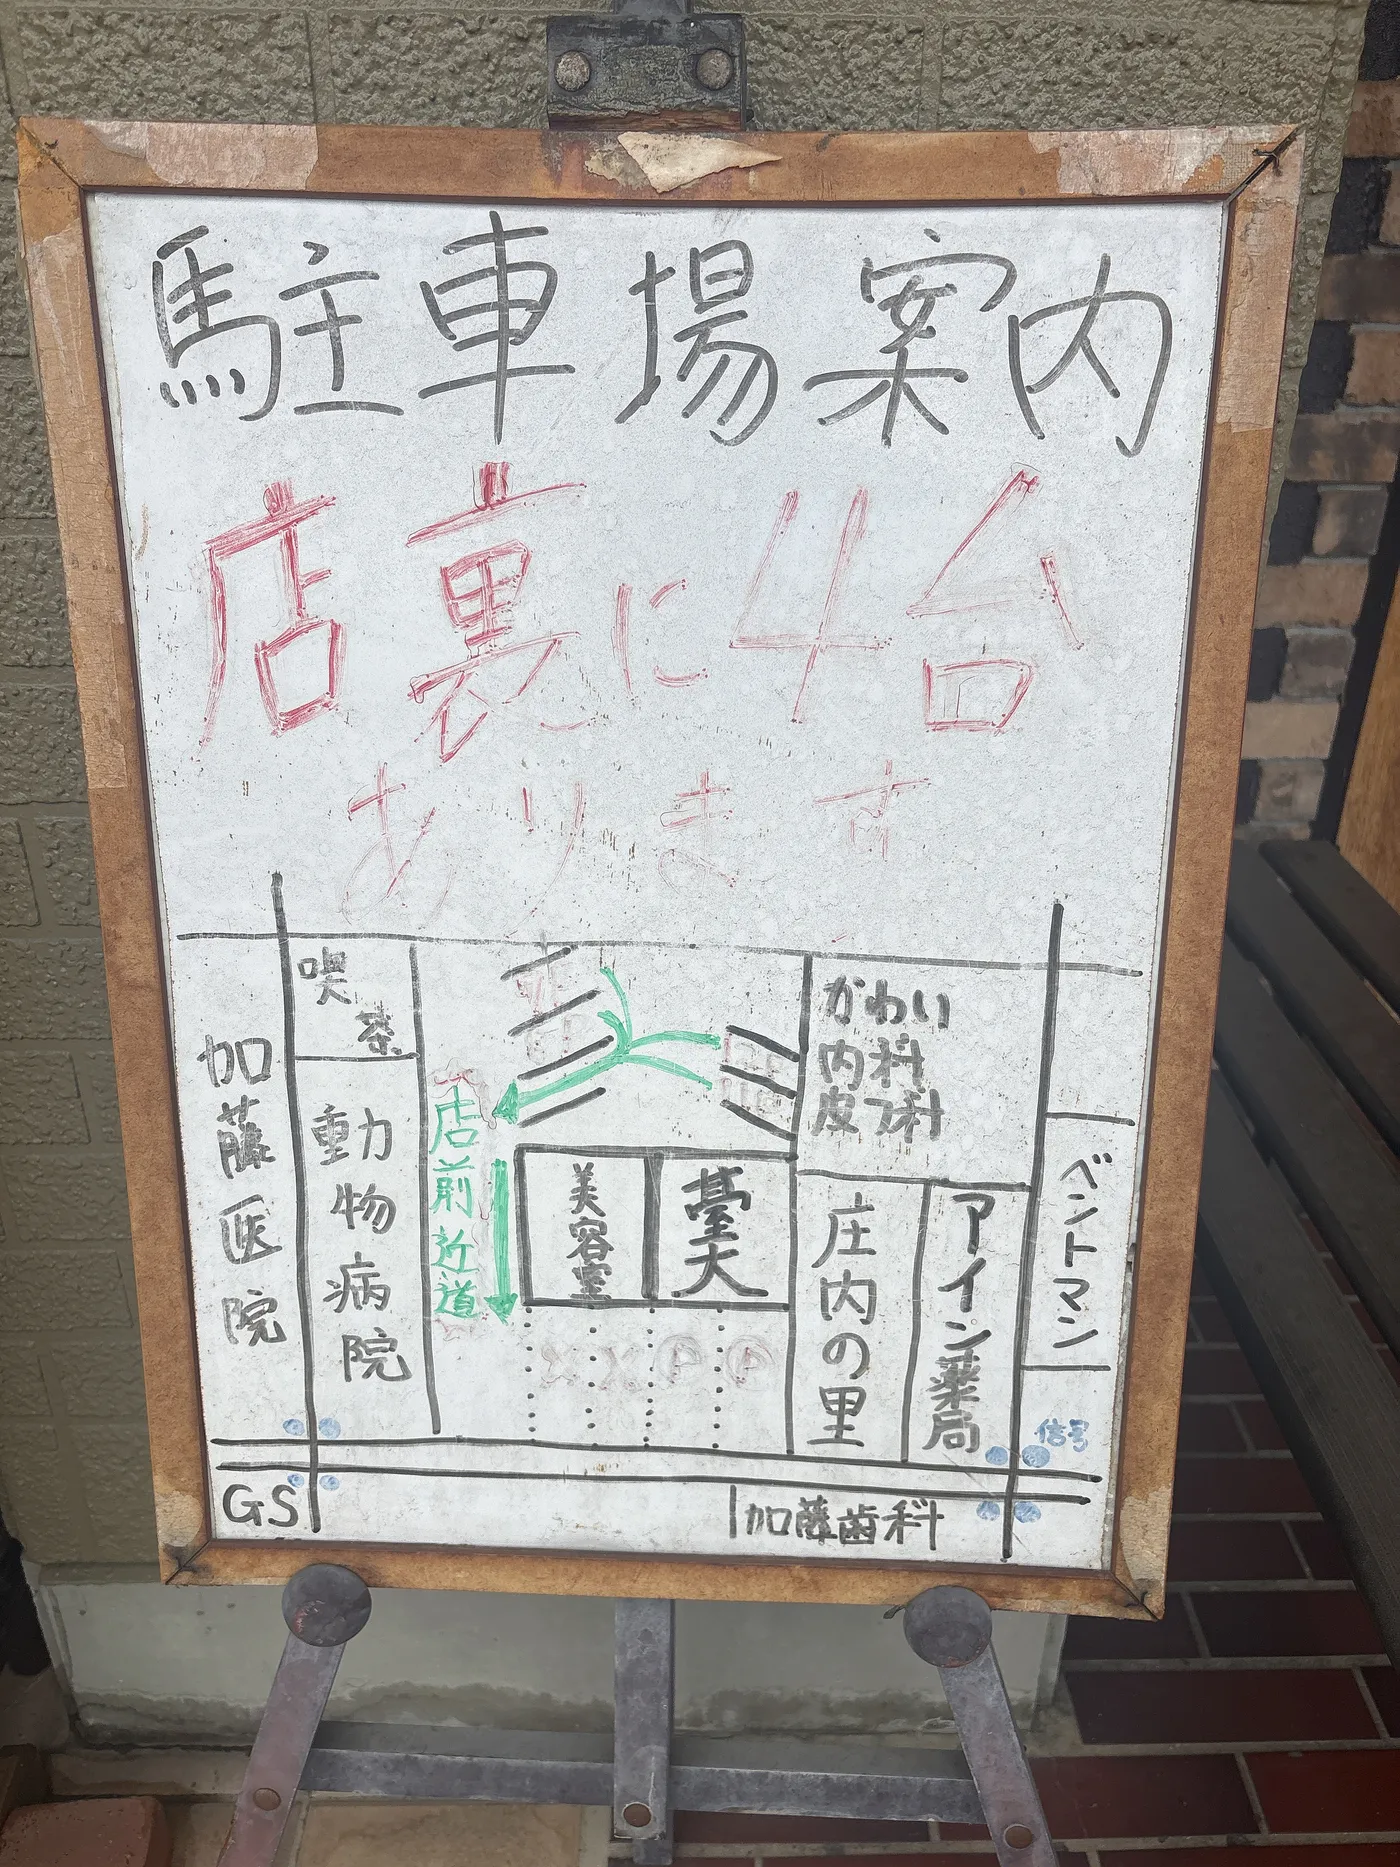 駐車場案内
店裏に4台
あります
喫茶
加藤医院
動物病院
店前近道
美容室
臺大
かわい
内科
皮フ科
庄内の里
アイン薬局
ベントマン
信号
GS
加藤歯科